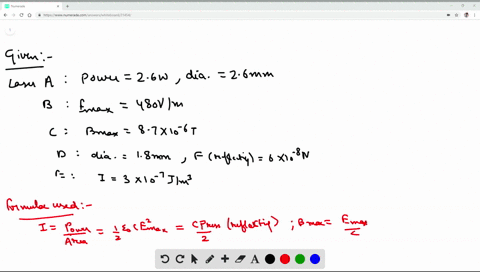 Numerade
Given:-
Laser A : Power = 2.6W , dia. = 2.6mm
B : Emax = 480V/m
C : Bmax = 8.7×10⁻⁶ T
D : dia. = 1.8mm , F (reflectig) = 6×10⁻⁸N
E : I = 3×10⁻⁷ J/m³
formula used:-
I = Power/Area = 1/2 ε₀ C E²max = C Press/2 (reflectig) ; Bmax = Emax/C
A